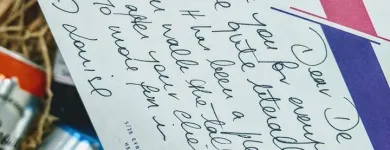 Dear De
you for every
quite literal
It has been a ple
walk the tal
after your clie
to more fun in
Louise